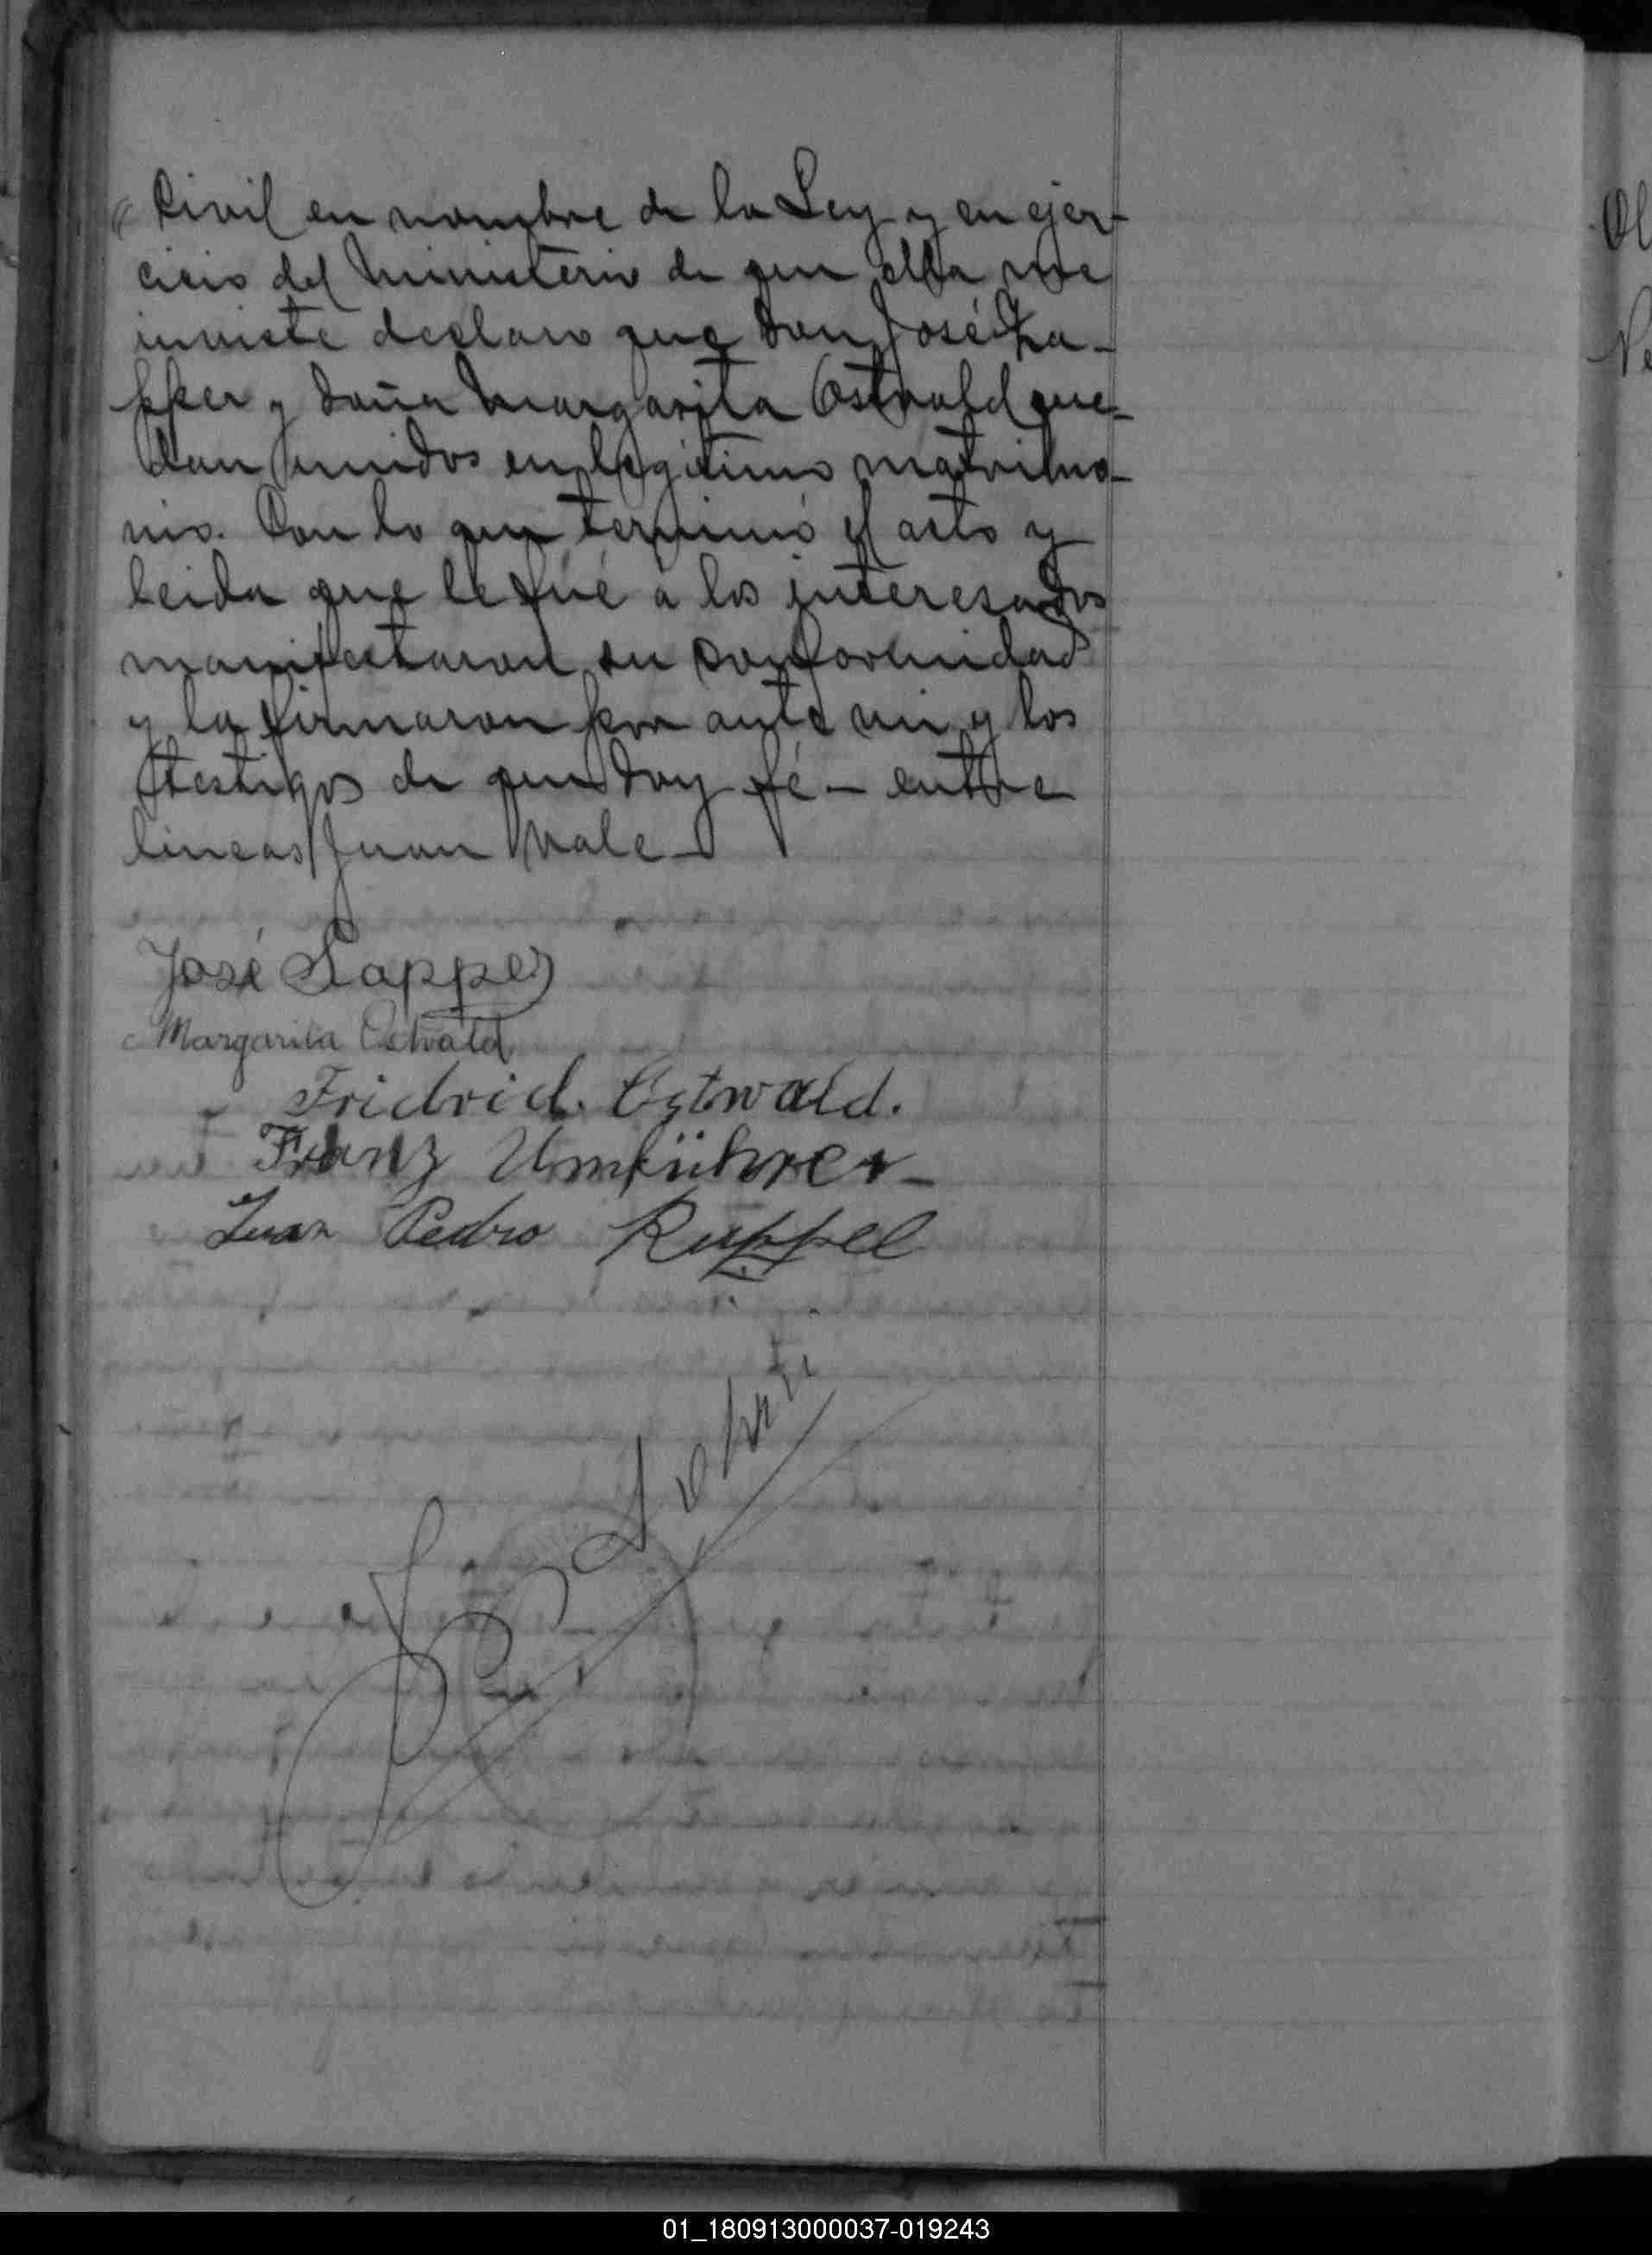 Civil en nombre de la Ley y en ejer-
cicio del Ministerio de que ella me
inviste declaro que Don José Za-
pper y doña Margarita Ostwald que-
dan unidos en legitimo matrimo-
nio. Con lo que terminó el acto y
leida que le fué á los interesados
manifestaron su conformidad
y la firmaron por ante mi y los
testigos de que doy fé - entre
lineas Juan Vale
José Sapper
Margarita Ostwald
Fridrich. Ostwald.
Franz Umführer
Juan Pedro Ruppel
01_180913000037-019243